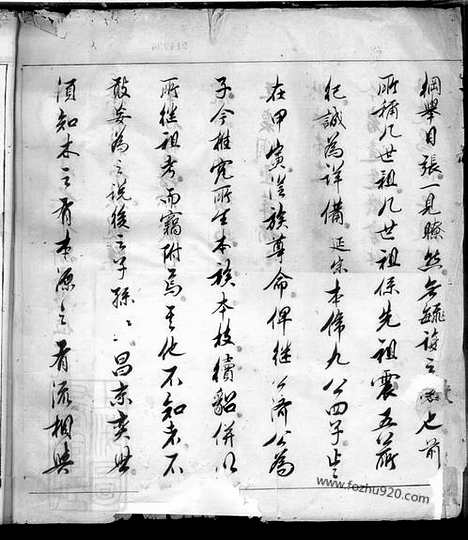 綱舉目張一見瞭然無疏之七前
所稱九世祖九世祖係先祖震五公所
紀誠為詳備延宗本係九公四子上
在甲寅從族尊命俾继公濟公為
子今推究所生本族本枝續貂併以
所继祖考而竊附焉其他不知者不
敢妄為之說後之子孫〻昌素奕世
須知木之有本源之有流相與
www.fozhu920.com